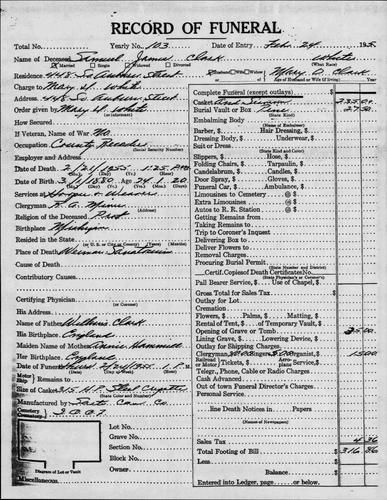 RECORD OF FUNERAL
Total No. Yearly No. 103 Date of Entry Feb. 24 1955
Name of Deceased Samuel James Clark White
Married Single Widowed Divorced (What Race)
Residence 448 So Auburn Street Husband Wife Widow of Mary O. Clark
Age of Husband or Wife (if living) Years
Charge to Mary H. White
Address 448 So Auburn Street
Order given by Mary H White
How Secured
If Veteran, Name of War No.
Occupation County Recorder
(Social Security Number)
Employer and Address
Date of Death 2/21/1955 1:25 P.M.
Date of Birth 3/1/1880 Age 74
Services at
Clergyman
Religion of the Deceased Prot
Birthplace Michigan
Resided in the State
(or U. S. or City or County) (Years) (Months)
Place of Death Weimar Sanatorium
Cause of Death
Contributory Causes
Certifying Physician
(or Coroner)
His Address
Name of Father William Clark
His Birthplace England
Maiden Name of Mother Hammill
Her Birthplace England
Date of Funeral Thurs. 2/24/1955 1 P.M.
Motor Ship Remains to
Size of Casket
(State Color and Number)
Manufactured by
Cemetery Crematory I.O.O.F.
Lot No.
Grave No.
Section No.
Block No.
Owner
Diagram of Lot or Vault
Miscellaneous
Complete Funeral (except outlays)
Casket and Service 235.00
Burial Vault or Box 27.50
(State Kind)
Embalming Body
(Name of Embalmer)
Barber, $ Hair Dressing, $
Dressing Body, $ Underwear, $
Suit or Dress
(State Kind and Color)
Slippers, $ Hose, $
Folding Chairs, $ Tarpaulin, $
Candelabrum, $ Candles, $
Door Spray, $ Gloves, $
Funeral Car, $ Ambulance, $
Limousines to Cemetery @ $
Extra Limousines @ $
Autos to R. R. Station @ $
Getting Remains from
Taking Remains to
Trip to Coroner's Inquest
Delivering Box to
Deliver Flowers to
Removal Charges
Procuring Burial Permit
(State Number and District)
Certif. Copies of Death Certificates No.
(State Physician's or Coroner's)
Pall Bearer Service, $ Use of Chapel, $
Gross Total for Sales Tax
Outlay for Lot
Cremation
Flowers, $ Palms, $ Matting, $
Rental of Tent, $ of Temporary Vault, $
Opening of Grave or Tomb 35.00
Lining Grave, $ Lowering Device, $
Outlay for Shipping Charges
Clergyman Singers, $ Organist, $ 15.00
Railroad or Motor Tickets, $ Aeroplane Service, $
Telegr., Phone, Cable or Radio Charges
Cash Advanced
Out of town Funeral Director's Charges
Personal Services
line Death Notices in Papers
(Names of Newspapers)
Sales Tax 4.36
Total Footing of Bill 316.86
Less
Balance
Entered into Ledger, page or below.